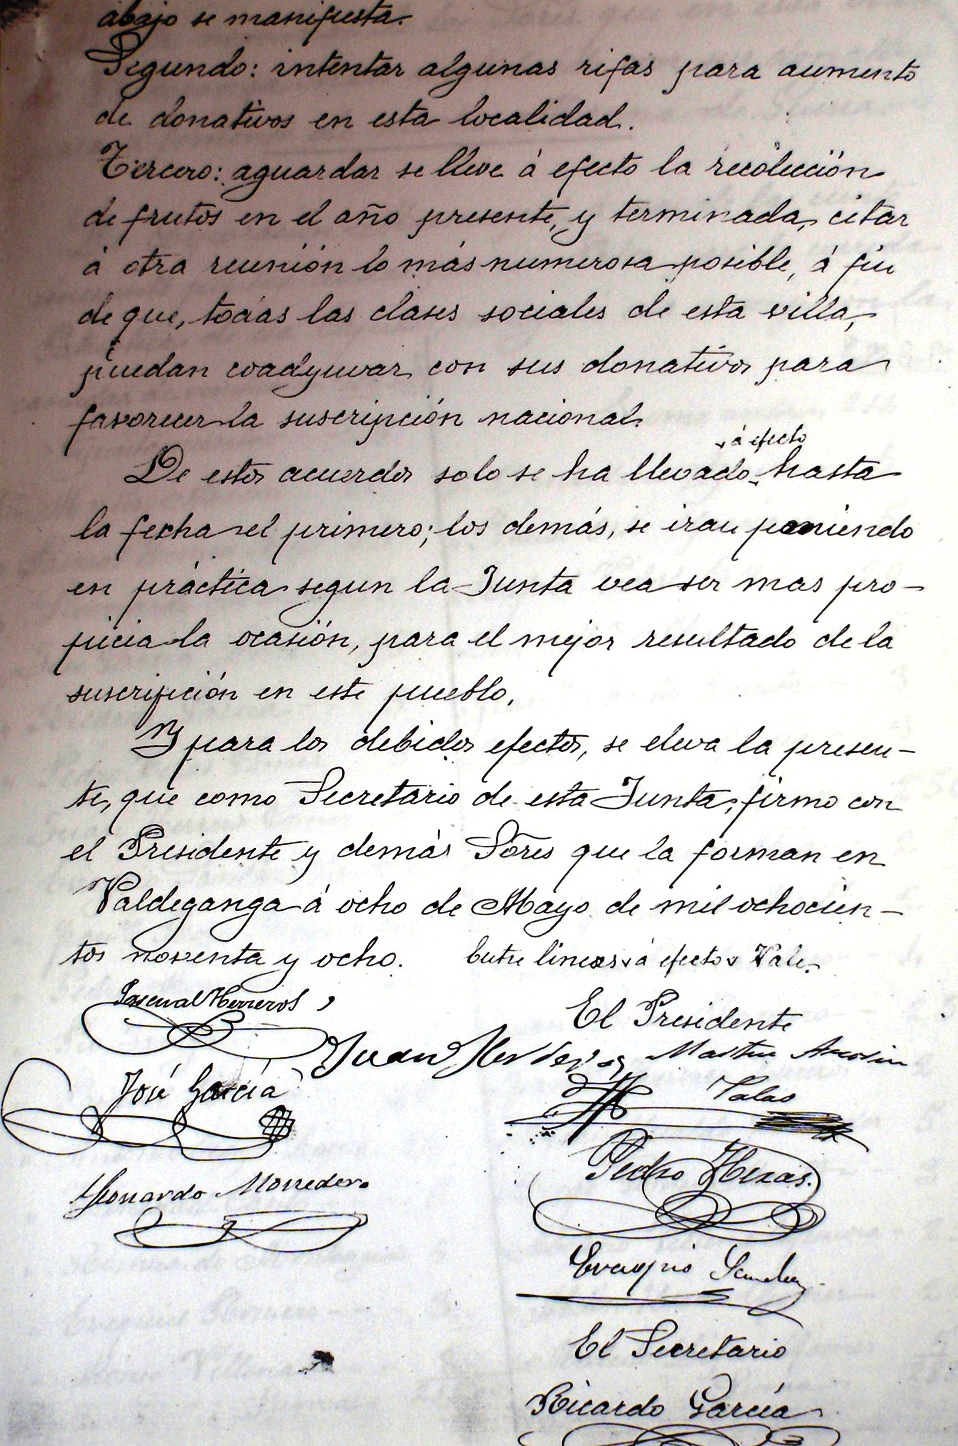 abajo se manifiesta.
Segundo: intentar algunas rifas para aumento
de donativos en esta localidad.
Tercero: aguardar se lleve á efecto la recolección
de frutos en el año presente, y terminada, citar
á otra reunión lo más numerosa posible, á fin
de que, todas las clases sociales de esta villa,
puedan coadyuvar con sus donativos para
favorecer la suscripción nacional.
De estos acuerdos solo se ha llevado á efecto hasta
la fecha el primero; los demás, se iran poniendo
en práctica segun la Junta vea ser mas pro-
picia la ocasión, para el mejor resultado de la
suscripción en este pueblo.
Y para los debidos efectos, se eleva la presen-
te, que como Secretario de esta Junta, firmo con
el Presidente y demás Sōres que la forman en
Valdeganga á ocho de Mayo de mil ochocien-
tos noventa y ocho. Entre lineas á efecto Vale.
Pascual Herreros
El Presidente
Juan
José García
Pedro Heras.
Leonardo Monedero
El Secretario
Ricardo García